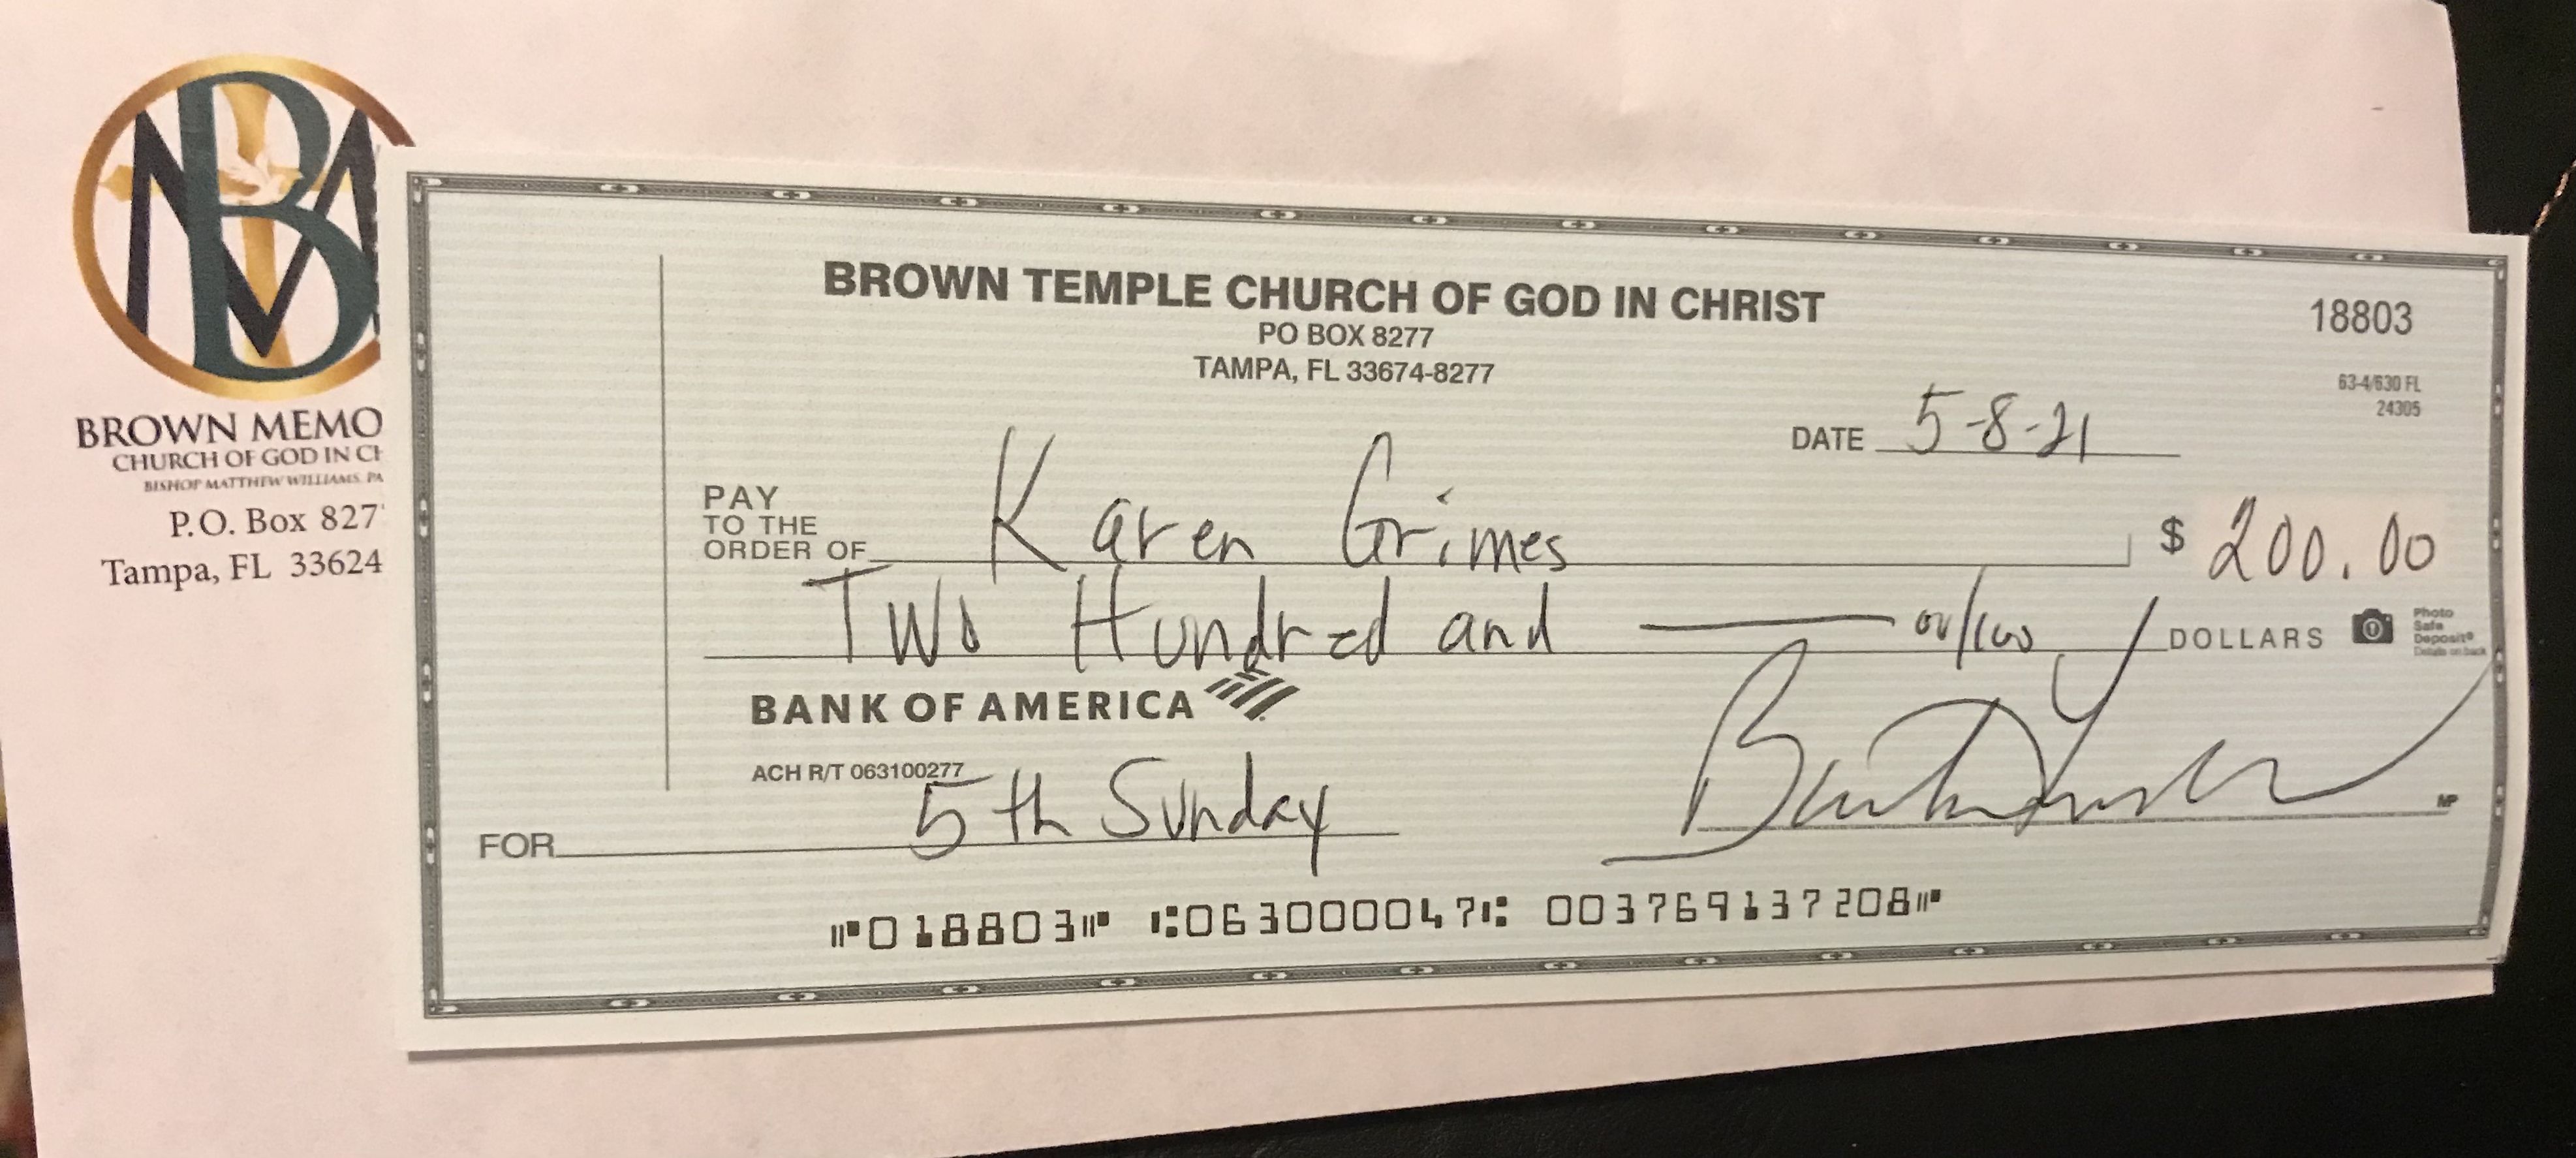 BROWN MEMO
CHURCH OF GOD IN CH
BISHOP MATTHEW WILLIAMS, PA
P.O. Box 827
Tampa, FL 33624
BROWN TEMPLE CHURCH OF GOD IN CHRIST
PO BOX 8277
TAMPA, FL 33674-8277
18803
63-4/630 FL
24305
DATE 5-8-21
PAY TO THE ORDER OF Karen Grimes $ 200.00
Two Hundred and 00/100 DOLLARS
Photo
Safe
Deposit®
Details on back
BANK OF AMERICA
ACH R/T 063100277
FOR 5th Sunday
MP
⑈018803⑈ ⑆063000047⑆ 003769137208⑈